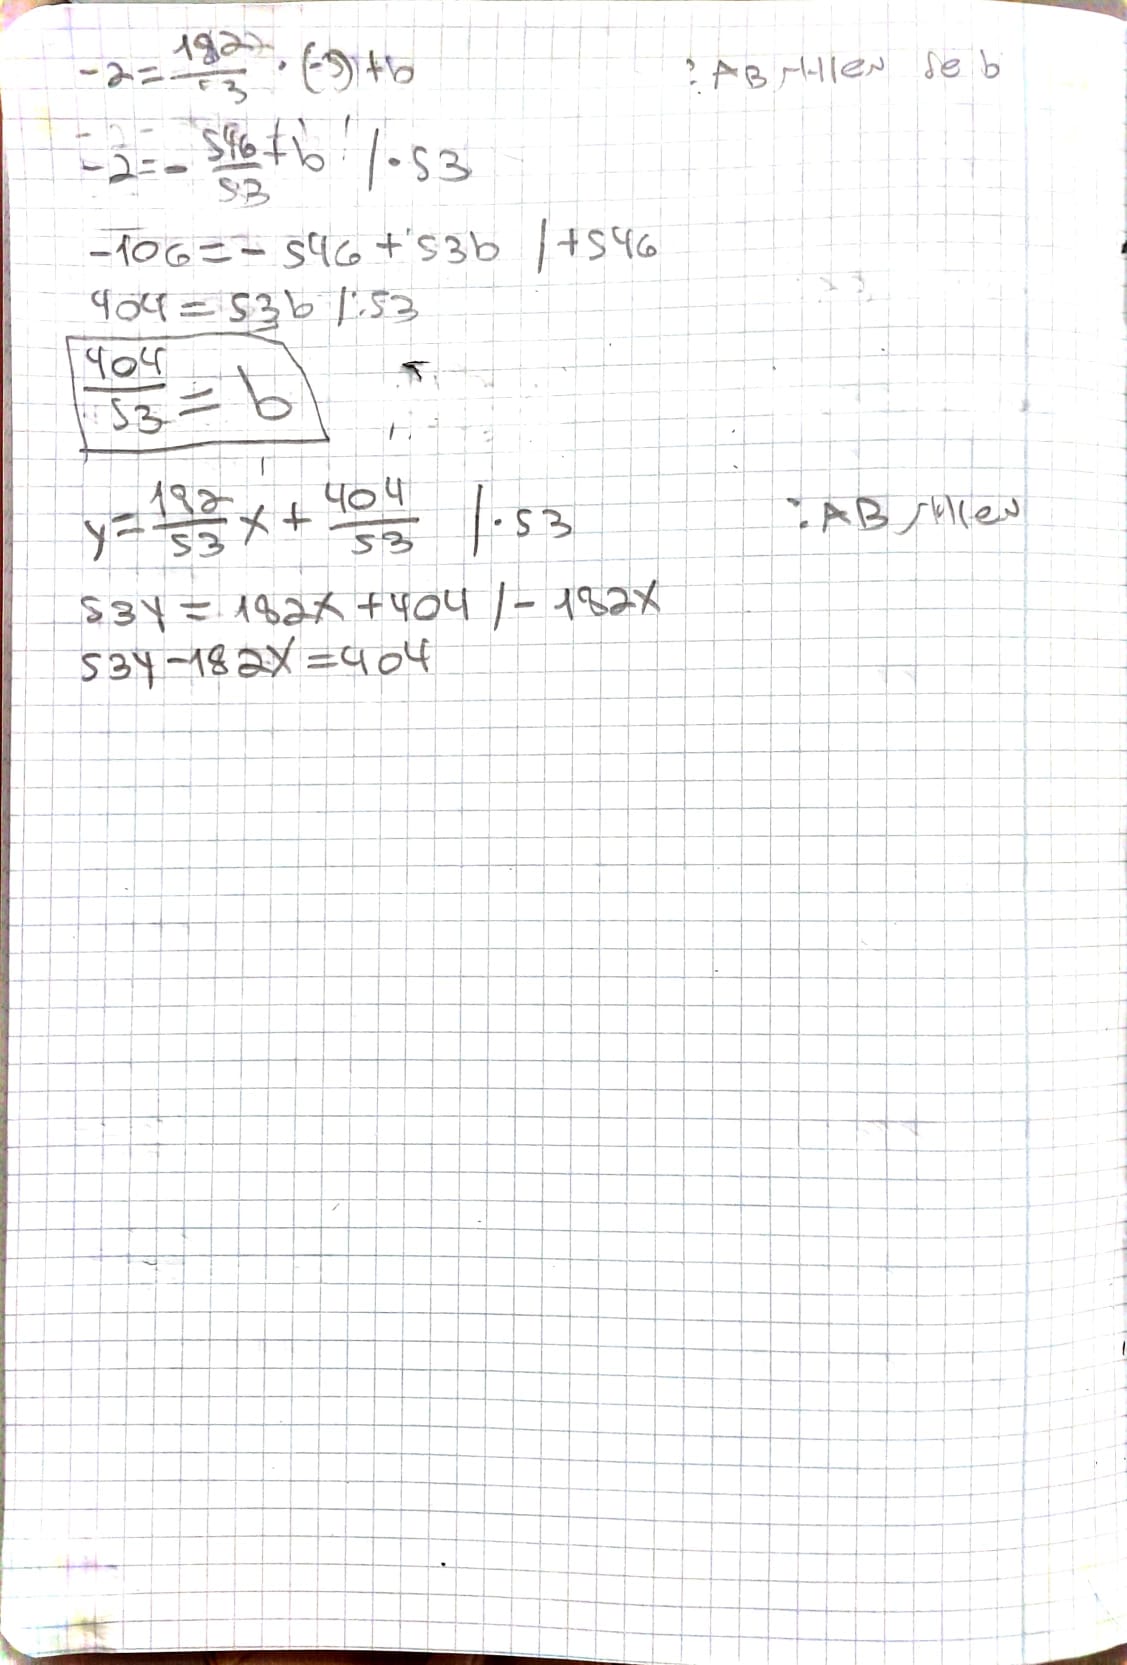 -2 = 182/53 · (-3) + b     b של משוואת AB:
-2 = - 546/53 + b /·53
-106 = - 546 + 53b /+546
404 = 53b /:53
404/53 = b
y = 182/53 x + 404/53 /·53     משוואת AB:
53y = 182x + 404 /- 182x
53y - 182x = 404